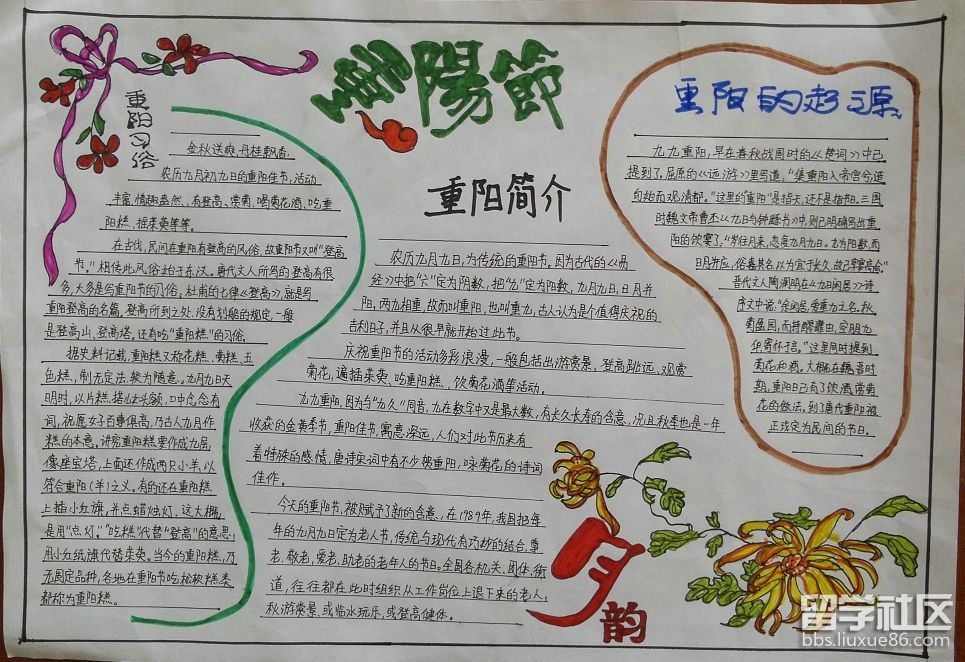 重陽節
重阳习俗
金秋送爽,丹桂飘香,
农历九月初九日的重阳佳节,活动
丰富,情趣盎然,有登高、赏菊、喝菊花酒、吃重
阳糕、插茱萸等等。
在古代,民间在重阳有登高的风俗,故重阳节又叫“登高
节。”相传此风俗始于东汉。唐代文人所写的登高有很
多,大多是写重阳节的习俗,杜甫的七律《登高》,就是写
重阳登高的名篇。登高所到之处,没有划一的规定,一般
是登高山、登高塔。还有吃“重阳糕”的习俗。
据史料记载,重阳糕又称花糕、菊糕、五
色糕,制无定法,较为随意。九月九日天
明时,以片糕搭儿女头额,口中念念有
词,祝愿女子百事俱高,乃古人九月作
糕的本意。讲究重阳糕要作成九层,
像座宝塔,上面还作成两只小羊,以
符合重阳(羊)之义。有的还在重阳糕
上插小红旗,并点蜡烛灯。这大概
是用“点灯,”“吃糕”代替“登高”的意思,
用小红纸旗代替茱萸。当今的重阳糕,乃
无固定品种,各地在重阳节吃松软糕类
都称为重阳糕。
重阳简介
农历九月九日,为传统的重阳节。因为古代的《易
经》中把“六”定为阴数,把“九”定为阳数,九月九日,日月并
阳,两九相重,故而叫重阳,也叫重九,古人认为是个值得庆祝的
吉利日子,并且从很早就开始过此节。
庆祝重阳节的活动多彩浪漫,一般包括出游赏景、登高眺远、观赏
菊花,遍插茱萸、吃重阳糕、饮菊花酒等活动。
九九重阳,因为与“九久”同音,九在数字中又是最大数,有长久长寿的含意,况且秋季也是一年
收获的金黄季节,重阳佳节,寓意深远,人们对此节历来有
着特殊的感情,唐诗宋词中有不少贺重阳,咏菊花的诗词
佳作。
今天的重阳节,被赋予了新的含意,在1989年,我国把每
年的九月九日定为老人节,传统与现代有巧妙的结合,尊
老、敬老、爱老、助老的老年人的节日。全国各机关、团体、街
道,往往都在此时组织从工作岗位上退下来的老人,
秋游赏景、或临水玩乐、或登高健体。
重阳的起源
九九重阳,早在春秋战国时的《楚词》中已
提到了。屈原的《远游》里写道:“集重阳入帝宫兮造
旬始而观清都。”这里的“重阳”是指天,还不是指节日。三国
时魏文帝曹丕《九日与钟繇书》中,则已明确写出重
阳的饮宴了。“岁往月来,忽复九月九日。九为阳数,而
日月并应,俗嘉其名,以为宜于长久,故已享宴高会。”
晋代文人陶渊明在《九日闲居》诗
序文中说:“余闲居,爱重九之名。秋
菊盈园,而持醪靡由,空服九
华,寄怀于言。”这里同时提到
菊花和酒。大概在魏晋时
期,重阳日已有了饮酒,赏菊
花的做法,到了唐代重阳被
正式定为民间的节日。
韵
留学社区
bbs.liuxue86.com